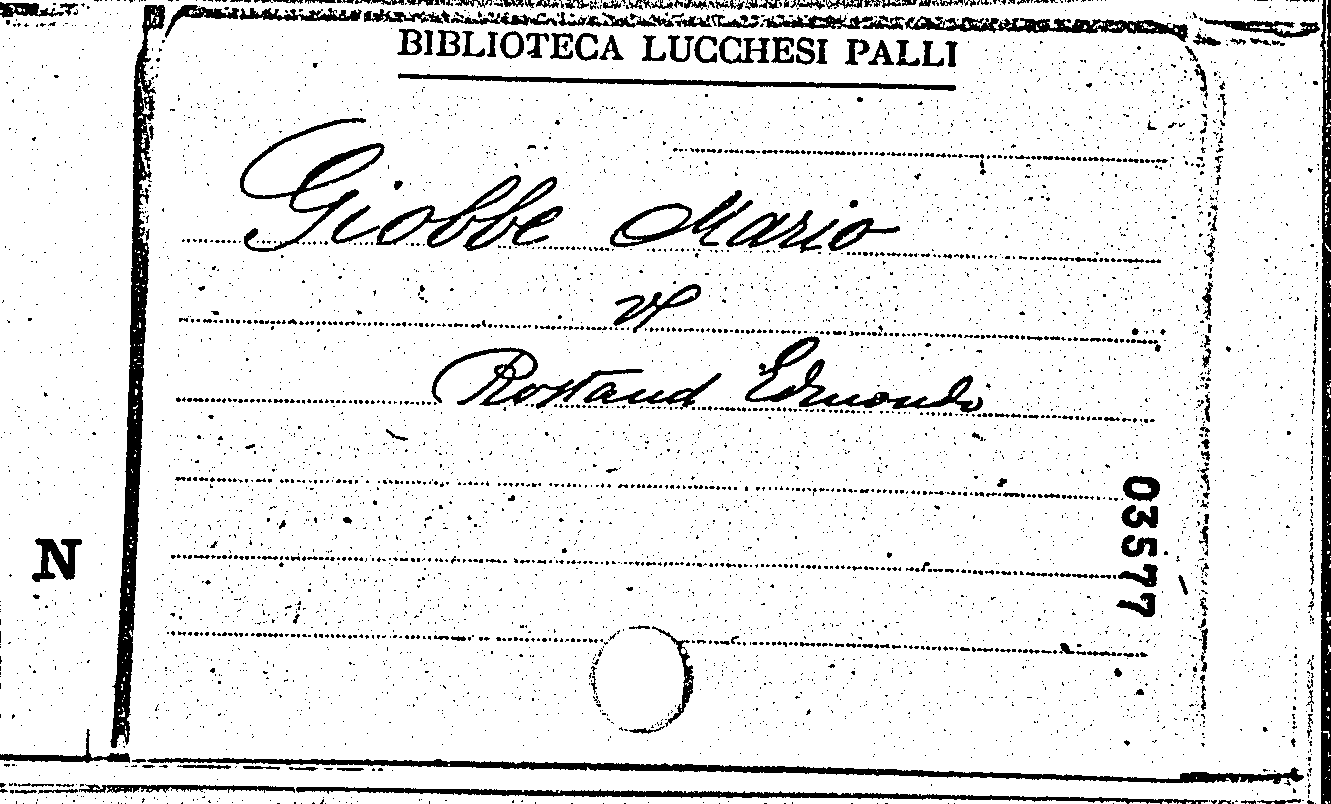 BIBLIOTECA LUCCHESI PALLI
Giobbe Mario
vi
Rostand Edmondo
03577
N